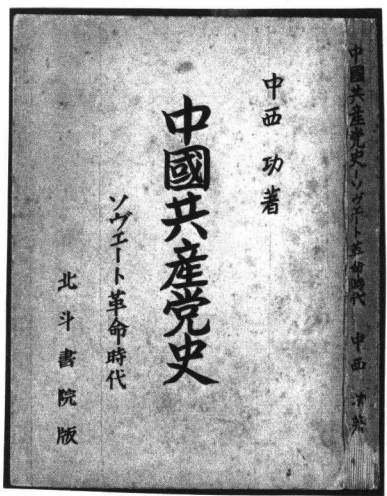 中國共産党史―ソヴエート革命時代 中西
中西 功著
中國共産党史
ソヴエート革命時代
北斗書院版